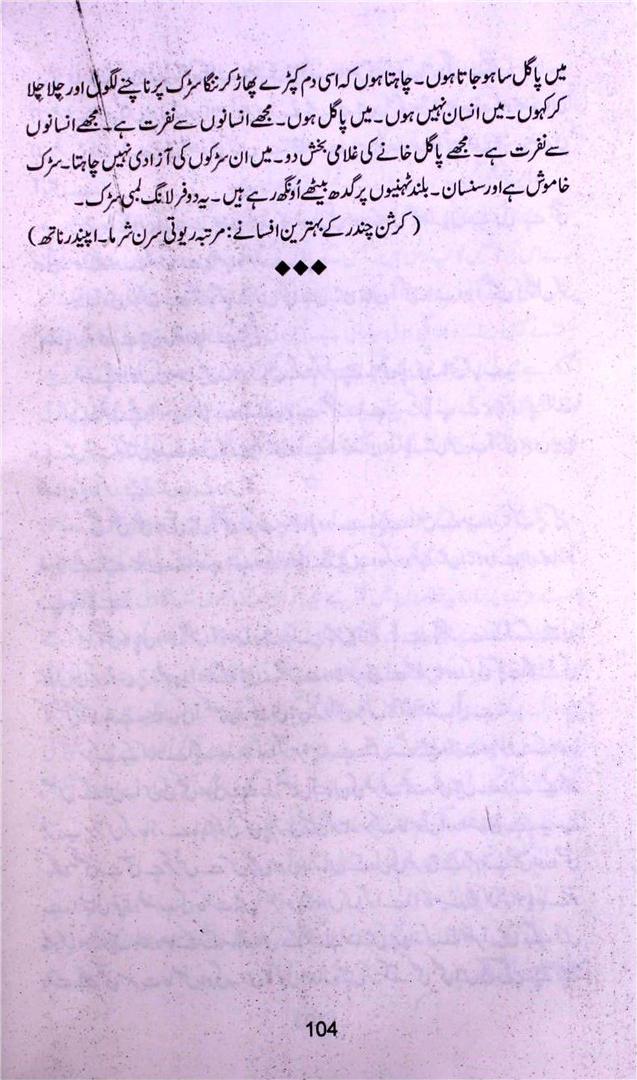 میں پاگل سا ہو جاتا ہوں۔ چاہتا ہوں کہ اسی دم کپڑے پھاڑ کر ننگا سڑک پر ناچنے لگوں اور چلا چلا
کر کہوں۔ میں انسان نہیں ہوں۔ میں پاگل ہوں۔ مجھے انسانوں سے نفرت ہے۔ مجھے انسانوں
سے نفرت ہے۔ مجھے پاگل خانے کی غلامی بخش دو۔ میں ان سڑکوں کی آزادی نہیں چاہتا۔ سڑک
خاموش ہے اور سنسان۔ بلند ٹہنیوں پر گدھ بیٹھے اُونگھ رہے ہیں۔ یہ دو فرلانگ لمبی سڑک۔
(کرشن چندر کے بہترین افسانے: مرتبہ ریوتی سرن شرما۔ اپیندر ناتھ)
104